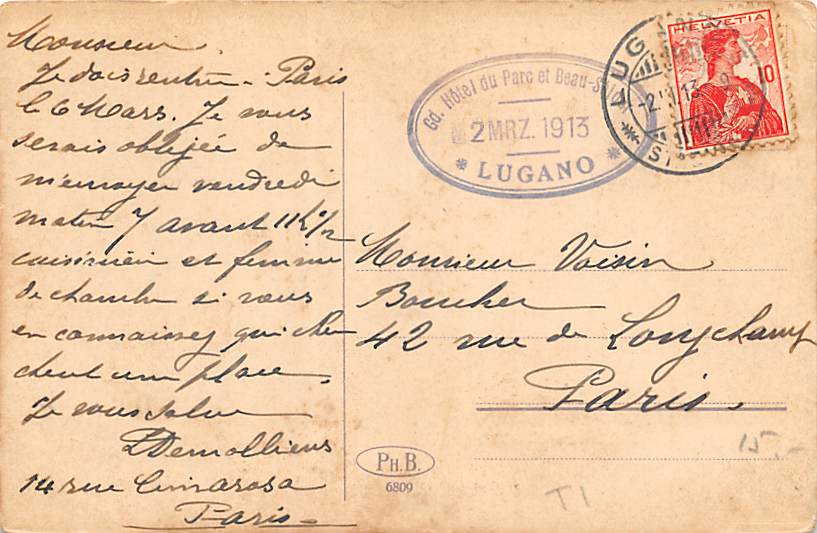 Monsieur
Je dois rentrer - Paris
le 6 Mars. Je vous
serais obligée de
m'envoyer vendredi
matin 7 avant 11h 1/2
cuisinière et femme
de chambre si vous
en connaissez qui cher
chent une place.
Je vous salue
LDemolliens
14 rue Cimarosa
Paris
Gd. Hôtel du Parc et Beau-Séj
2 MRZ. 1913
* LUGANO *
LUG
-2.
13
HELVETIA
10
Monsieur Voisin
Boucher
42 rue de Longchamp
Paris.
15.-
PH.B.
6809
T1